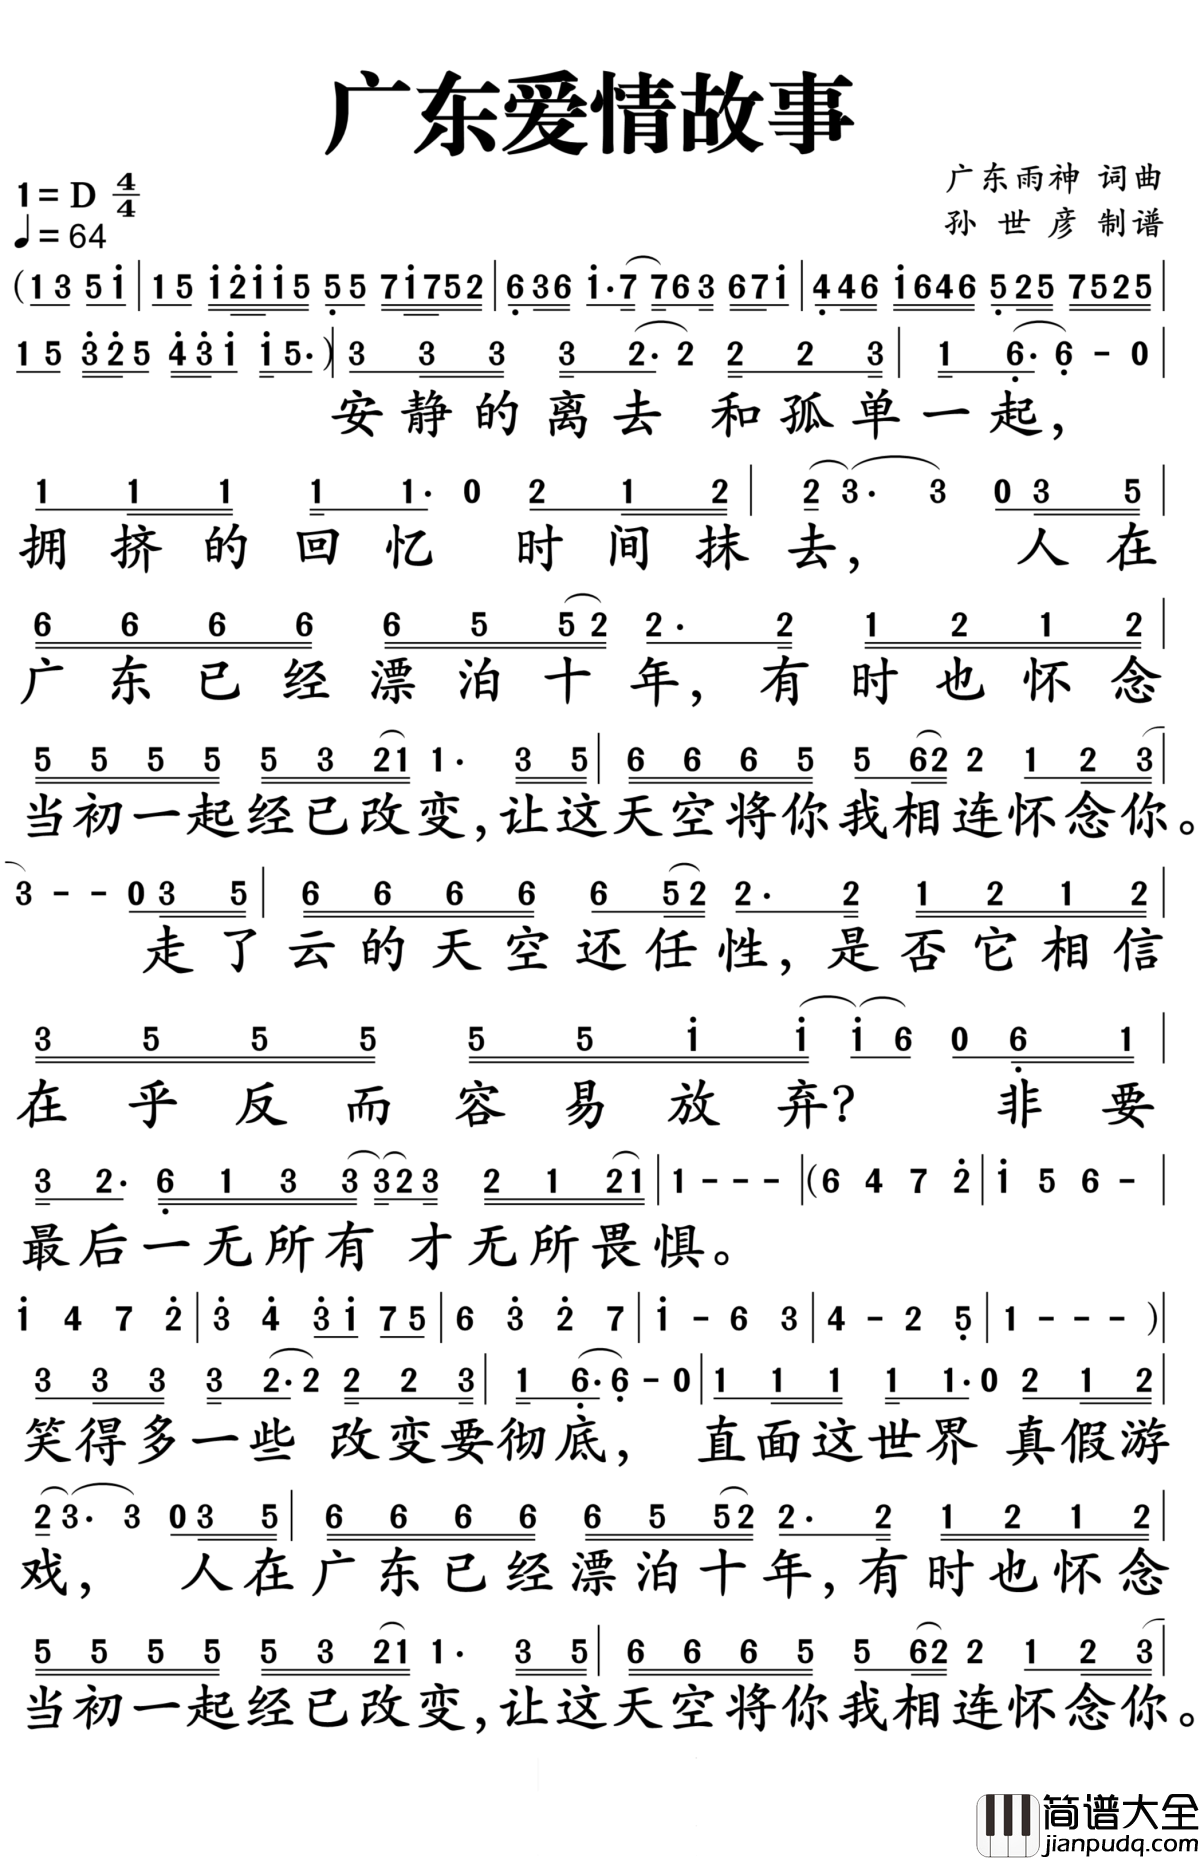 广东爱情故事
广东雨神 词曲
1=D 4/4
孙世彦 制谱
♩=64
(1 3 5 i | 1 5 i2ii5 5 5 7i752 | 6 36 i·7 763 67i | 4 46 i646 5 25 7525 |
1 5 325 43i i5·) | 3 3 3 3 2·2 2 2 3 | 1 6·6 - 0 |
安静的离去 和孤单一起,
1 1 1 1 1· 0 2 1 2 | 2 3· 3 0 3 5 |
拥挤的回忆 时间抹去, 人在
6 6 6 6 6 5 52 2· 2 1 2 1 2 |
广东已经漂泊十年,有时也怀念
5 5 5 5 5 3 21 1· 3 5 | 6 6 6 5 5 62 2 1 2 3 |
当初一起经已改变,让这天空将你我相连怀念你。
3 - - 0 3 5 | 6 6 6 6 6 52 2· 2 1 2 1 2 |
走了云的天空还任性,是否它相信
3 5 5 5 5 5 i i i 6 0 6 1 |
在乎反而容易放弃? 非要
3 2· 6 1 3 3 323 2 1 21 | 1 - - - | (6 4 7 2 | i 5 6 - |
最后一无所有 才无所畏惧。
i 4 7 2 | 3 4 3i 75 | 6 3 2 7 | i - 6 3 | 4 - 2 5 | 1 - - - ) |
3 3 3 3 2·2 2 2 3 | 1 6·6 - 0 | 1 1 1 1 1·0 2 1 2 |
笑得多一些 改变要彻底, 直面这世界 真假游
2 3· 3 0 3 5 | 6 6 6 6 6 5 52 2· 2 1 2 1 2 |
戏, 人在广东已经漂泊十年,有时也怀念
5 5 5 5 5 3 21 1· 3 5 | 6 6 6 5 5 62 2 1 2 3 |
当初一起经已改变,让这天空将你我相连怀念你。
简谱大全
jianpudq.com